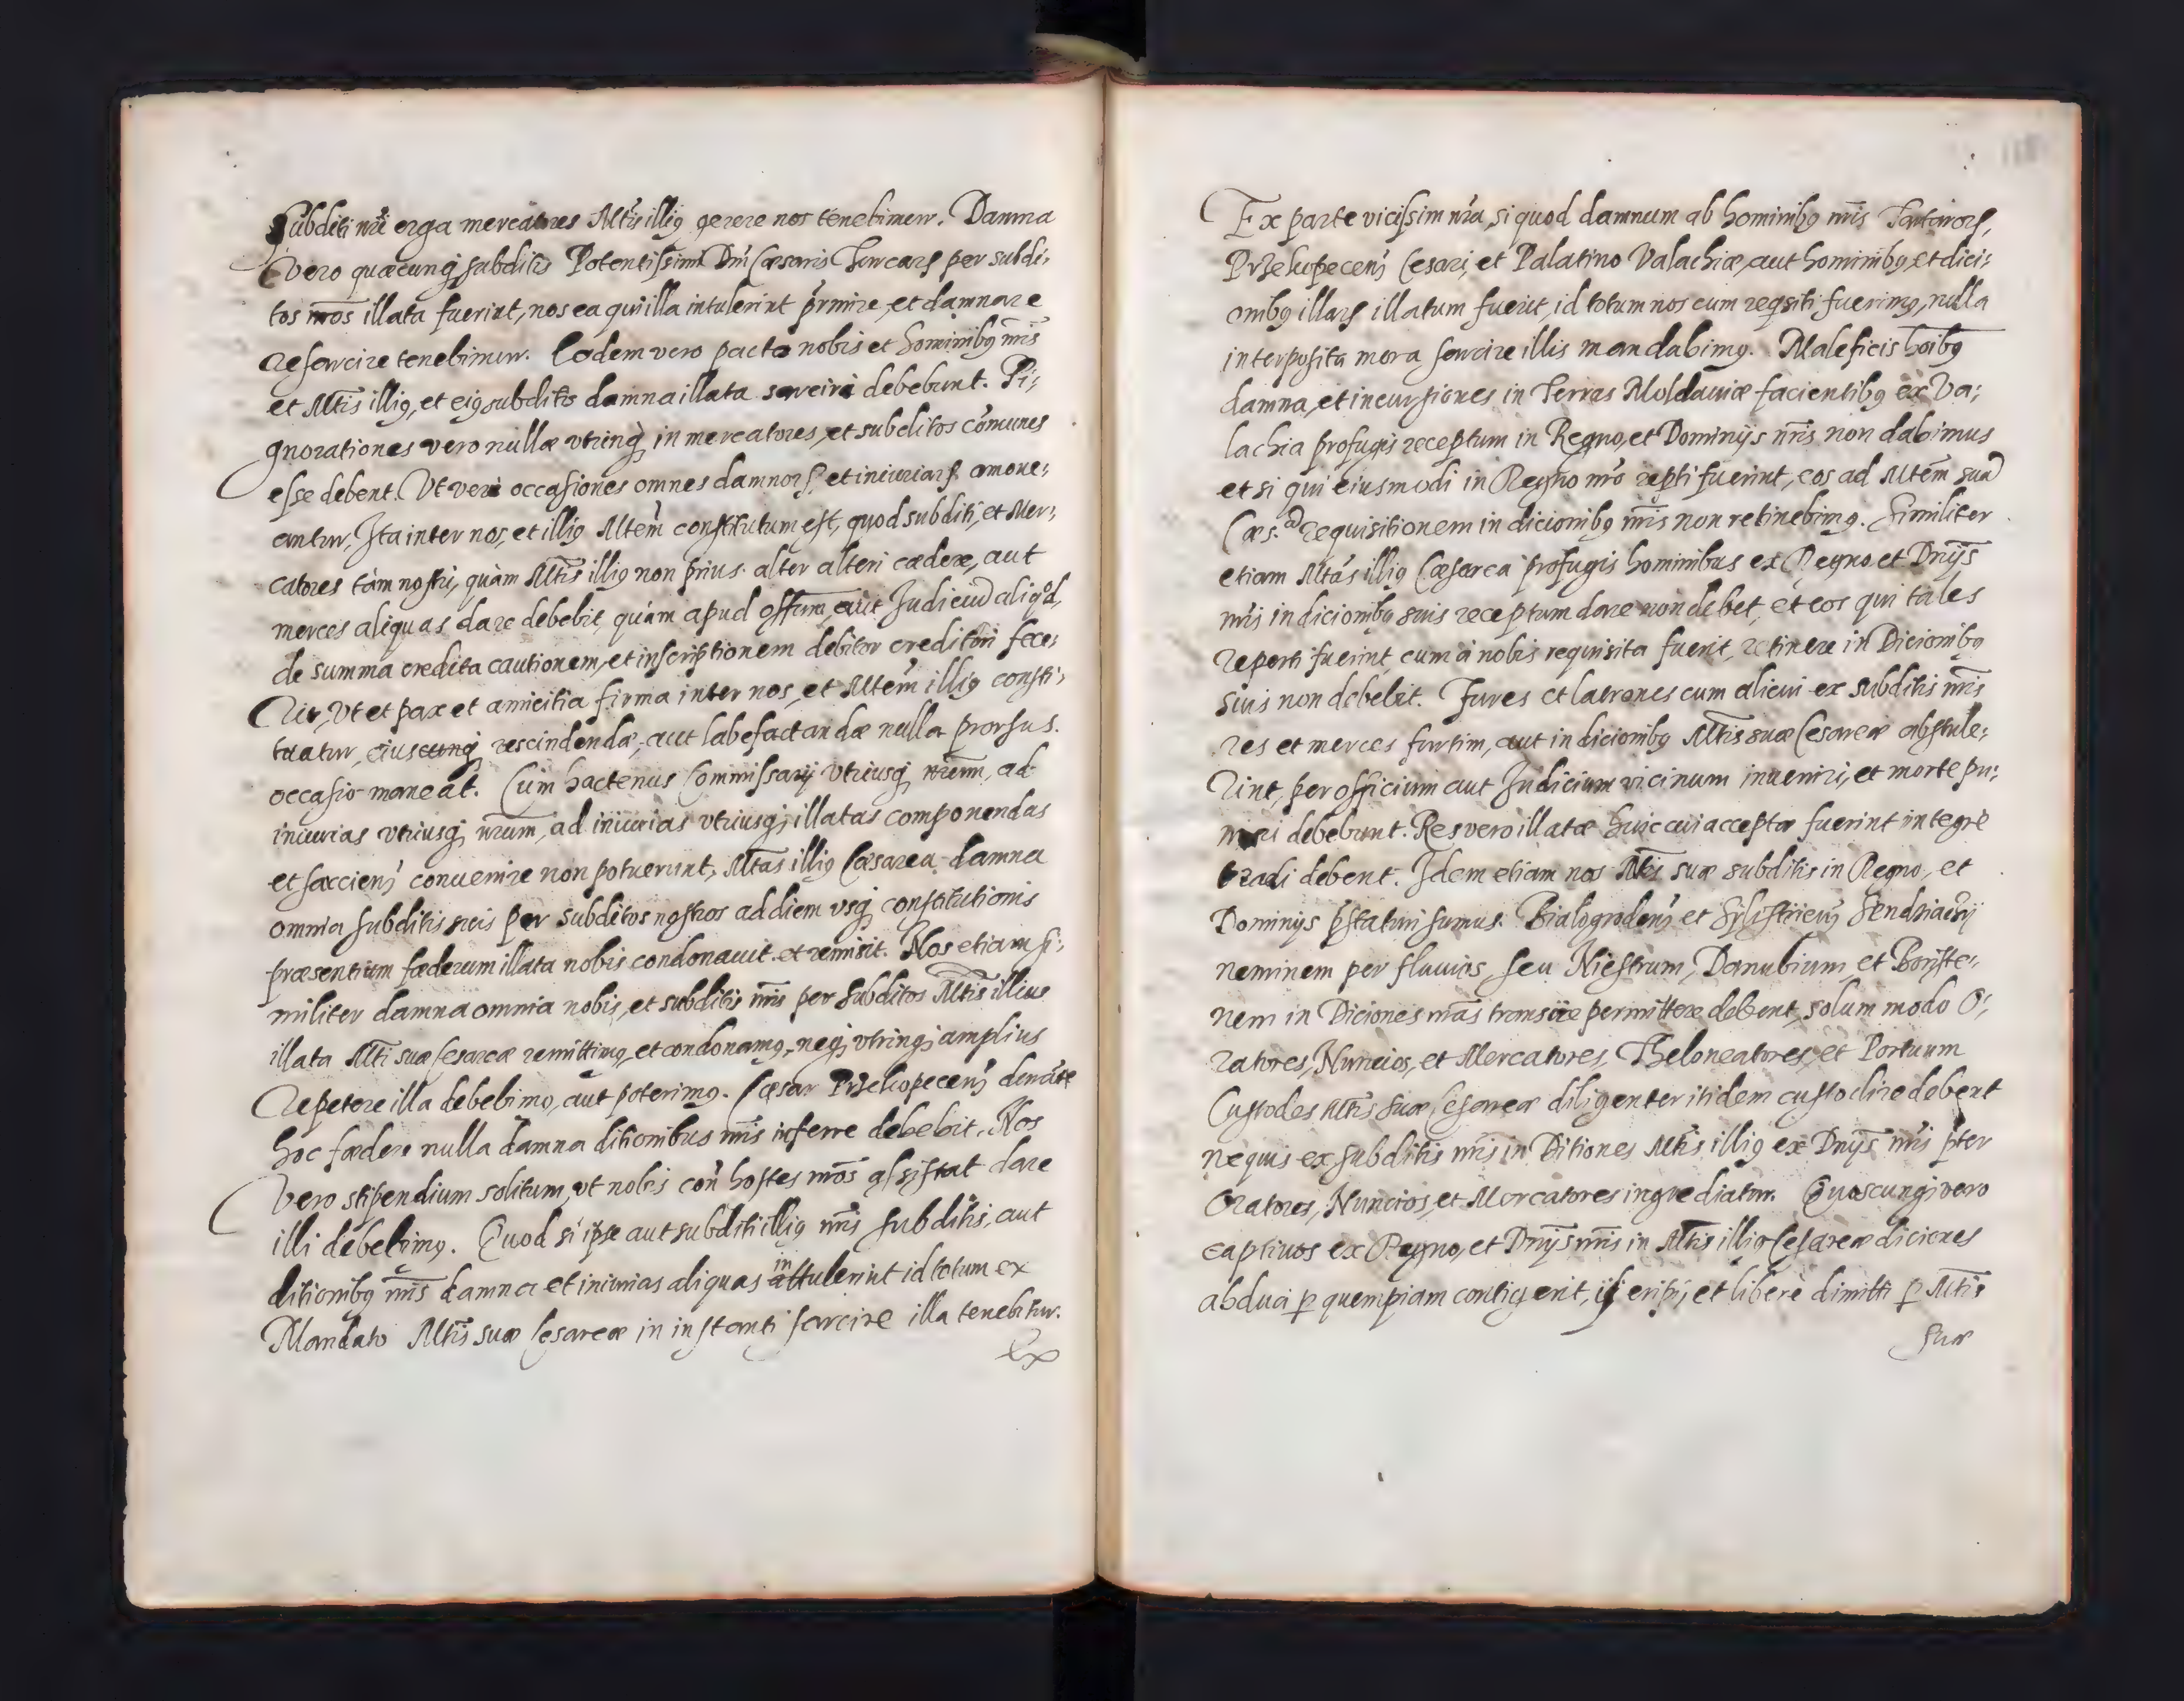 Subditi nri erga mercatores Mtis illig gerere nos tenebimur. Damna
vero quæcunq subditis Potentissimi Dni Cæsaris Turcarꝝ per subdi:
tos nros illata fuerint, nos ea qui illa intulerint prmire, et damna re
resarcire tenebimur. Eodem vero pacto nobis et hominibg nris
et Mtis illig, et eig subditis damna illata sarciri debebunt. Pi:
gnorationes vero nullæ vtrinq in mercatores, et subditos comunes
esse debent. Vt vero occasiones omnes damnorꝝ et iniuriarꝝ amoue:
antur, Ita inter nos, et illig Mtem constitutum est, quod subditi, et Mer:
catores tàm nostri, quàm Mtis illig non prius alter alteri cædere, aut
merces aliquas dare debebit, quàm apud offium aut Judiciu aliqod,
de summa credita cautionem, et inscriptionem debitor creditori fece:
rit, Vt et pax et amicitia firma inter nos, et Mtem illig consti:
tuatur, eiuscunq rescindendæ, aut labefactandæ nulla prorsus.
occasio maneat. Cùm hactenus Commissarij vtriusq nrum, ad
iniurias vtriusq nrum, ad iniurias vtriusq illatas componendas
et farciens conuenire non potuerunt, Mtas illig Cæsarea damna
omnia subditis suis per subditos nostros ad diem vsq constitutionis
præsentium fæderum illata nobis condonauit et remisit. Nos etiam si:
militer damna omnia nobis, et subditis nris per subditos Mtis illius
illata Mti suæ Cesareæ remittimg, et condonamg, neq vtrinq amplius
repetere illa debebimg, aut poterimg. Cæsar Przekopecens durate
hoc fædere nulla damna ditionibus nris inferre debebit. Nos
vero stipendium solitum, vt nobis con hostes nros assistat dare
illi debebimg. Quod si ipse aut subditi illig nris subditis, aut
ditionibg nris damna et iniurias aliquas in attulerint id totum ex
Mandato Mtis suæ Cesareæ in instanti sarcire illa tenebitur.
Ex
Ex parte vicissim nra, si quod damnum ab hominibg nris Tartarorꝝ,
Przekopecens Cesari, et Palatino Valachiæ, aut hominibg, et dici:
onibg illarꝝ illatum fuerit, id totum nos cum reqsiti fuerimg, nulla
interposita mora sarcire illis mandabimg. Maleficis hoibg
damna, et incursiones in Terras Moldauiæ facientibg ex Va:
lachia profugis receptum in Regno, et Dominijs nris non dabimus
et si qui eiusmodi in Regno nro repti fuerint, eos ad Mtem sua
Cæs: requisitionem in dicionibg nris non retinebimg. Similiter
etiam Mtas illig Cæsarea profugis hominibus ex Regno et Dnijs
nris in dicionibg suis receptum dare non debet, et eos qui tales
reperti fuerint, cum à nobis requisita fuerit, retinere in Dicionibg
suis non debebit. Fures et latrones cum alicui ex subditis nris
res et merces furtim, aut in dicionibg Mtis suæ Cesareæ abstule:
rint, per officium aut Judicium vicinum inueniri, et morte pu:
niri debebunt. Res vero illatæ huic cui acceptæ fuerint integrè
tradi debent. Idem etiam nos Mtis suæ subditis in Regno, et
Dominijs pstaturi sumus. Bialogrodens et Sylistriens Sendziacij
neminem per fluuios, seu Niestrum, Danubium, et Boriste:
nem in Diciones nras transire permittere debent, solum modo O:
ratores, Nuncios, et Mercatores, Theloneatores, et Portuum
Custodes Mtis suæ Cesareæ diligenter itidem custodire debent
nequis ex subditis nris in Ditiones Mtis illig ex Dnijs nris pter
Oratores, Nuncios, et Mercatores ingrediatur. Quoscunq vero
captiuos ex Regno, et Dnijs nris in Mtis illig Cesareæ diciones
abduci p quempiam contigerit, ij eripi, et liberè dimitti p Mtis
suæ